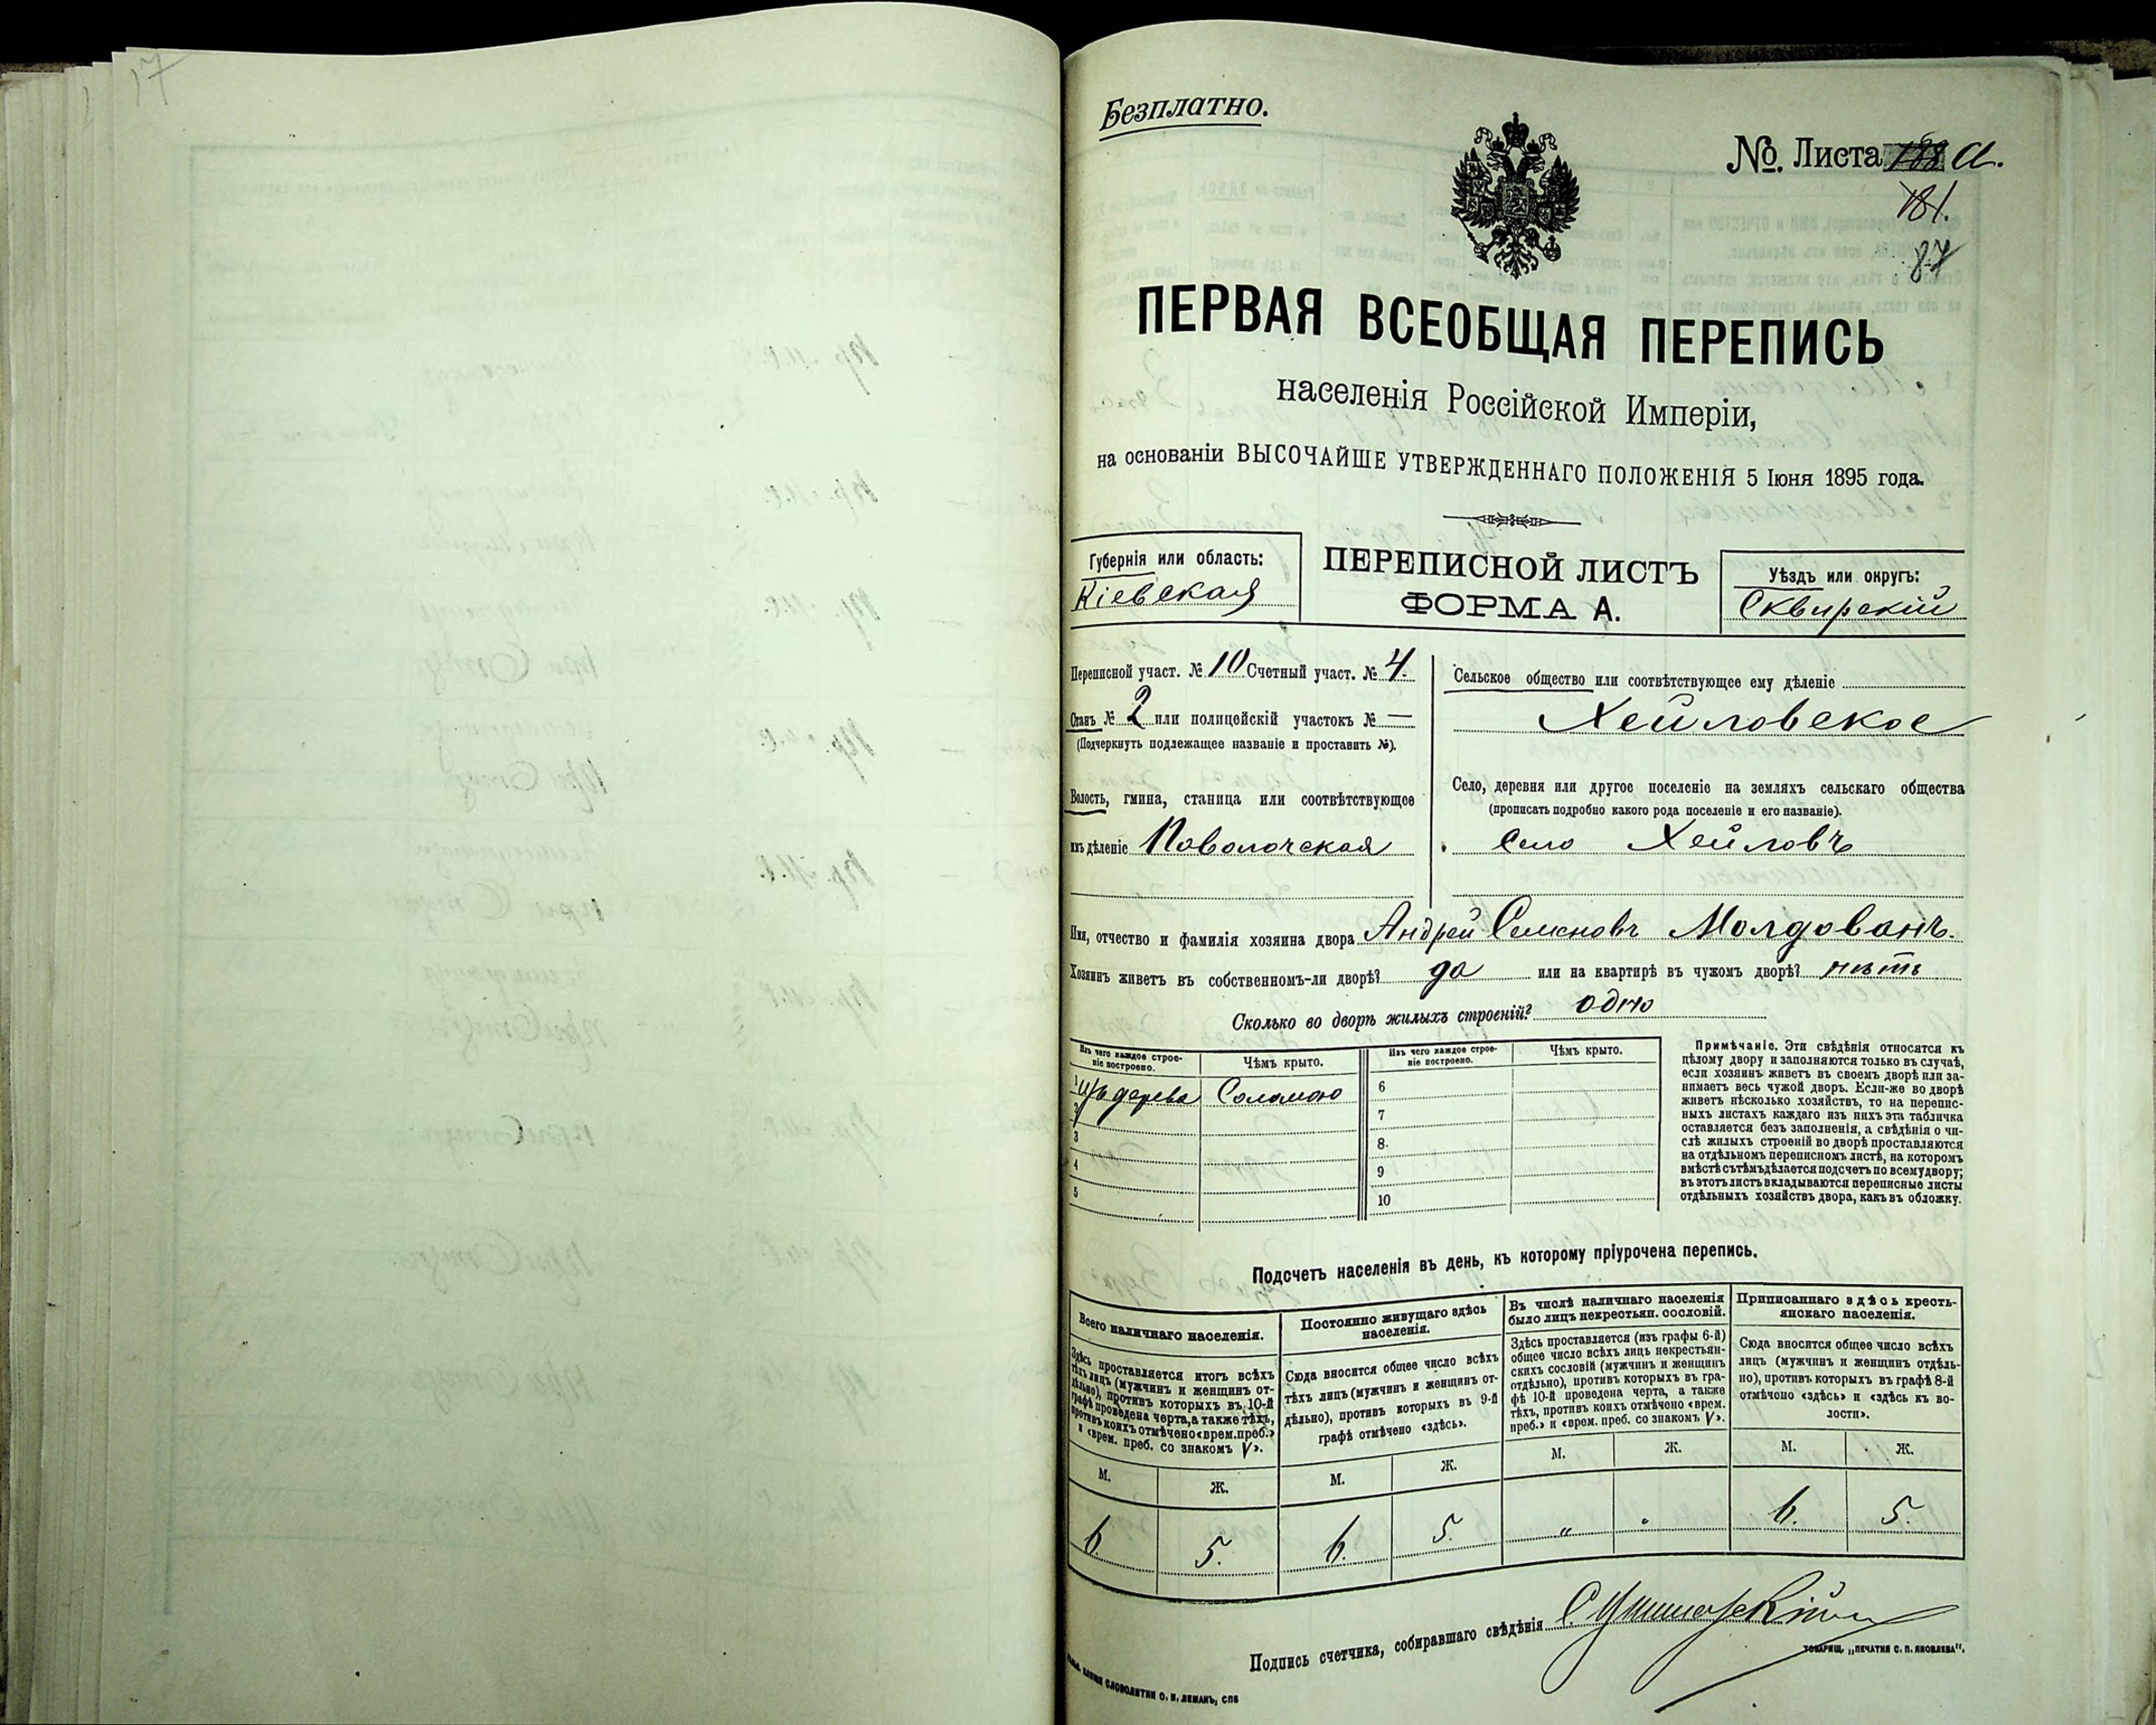 17
Безплатно.
№ Листа 188 а.
181.
87
ПЕРВАЯ ВСЕОБЩАЯ ПЕРЕПИСЬ
населенія Россійской Имперіи,
на основаніи ВЫСОЧАЙШЕ УТВЕРЖДЕННАГО ПОЛОЖЕНІЯ 5 Іюня 1895 года.
Губернія или область:
Кіевская
ПЕРЕПИСНОЙ ЛИСТЪ
ФОРМА А.
Уѣздъ или округъ:
Сквирскій
Переписной участ. № 10 Счетный участ. № 4.
Станъ № 2 или полицейскій участокъ № —
(Подчеркнуть подлежащее названіе и проставить №).
Волость, гмина, станица или соотвѣтствующее
имъ дѣленіе Поволочская
Сельское общество или соотвѣтствующее ему дѣленіе
Хейловское
Село, деревня или другое поселеніе на земляхъ сельскаго общества
(прописать подробно какого рода поселеніе и его названіе).
село Хейловъ
Имя, отчество и фамилія хозяина двора Андрей Семеновъ Молдованъ.
Хозяинъ живетъ въ собственномъ-ли дворѣ? да или на квартирѣ въ чужомъ дворѣ? нѣтъ
Сколько во дворѣ жилыхъ строеній? одно
Изъ чего каждое строе-
ніе построено.
Чѣмъ крыто.
Изъ чего каждое строе-
ніе построено.
Чѣмъ крыто.
1 изъ дерева Соломою
2
3
4
5
6
7
8.
9
10
Примѣчаніе. Эти свѣдѣнія относятся къ
цѣлому двору и заполняются только въ случаѣ,
если хозяинъ живетъ въ своемъ дворѣ или за-
нимаетъ весь чужой дворъ. Если-же во дворѣ
живетъ нѣсколько хозяйствъ, то на перепис-
ныхъ листахъ каждаго изъ нихъ эта табличка
оставляется безъ заполненія, а свѣдѣнія о чи-
слѣ жилыхъ строеній во дворѣ проставляются
на отдѣльномъ переписномъ листѣ, на которомъ
вмѣстѣ съ тѣмъ дѣлается подсчетъ по всему двору;
въ этотъ листъ вкладываются переписные листы
отдѣльныхъ хозяйствъ двора, какъ въ обложку.
Подсчетъ населенія въ день, къ которому пріурочена перепись.
Всего наличнаго населенія.
Здѣсь проставляется итогъ всѣхъ
тѣхъ лицъ (мужчинъ и женщинъ от-
дѣльно), противъ которыхъ въ 10-й
графѣ проведена черта, а также тѣхъ,
противъ коихъ отмѣчено «врем. преб.»
и «врем. преб. со знакомъ V».
М.
Ж.
6.
5.
Постоянно живущаго здѣсь
населенія.
Сюда вносится общее число всѣхъ
тѣхъ лицъ (мужчинъ и женщинъ от-
дѣльно), противъ которыхъ въ 9-й
графѣ отмѣчено «здѣсь».
М.
Ж.
6.
5.
Въ числѣ наличнаго населенія
было лицъ некрестьян. сословій.
Здѣсь проставляется (изъ графы 6-й)
общее число всѣхъ лицъ некрестьян-
скихъ сословій (мужчинъ и женщинъ
отдѣльно), противъ которыхъ въ гра-
фѣ 10-й проведена черта, а также
тѣхъ, противъ коихъ отмѣчено «врем.
преб.» и «врем. преб. со знакомъ V».
М.
Ж.
„
Приписаннаго здѣсь кресть-
янскаго населенія.
Сюда вносится общее число всѣхъ
лицъ (мужчинъ и женщинъ отдѣль-
но), противъ которыхъ въ графѣ 8-й
отмѣчено «здѣсь» и «здѣсь къ во-
лости».
М.
Ж.
6.
5.
Подпись счетчика, собиравшаго свѣдѣнія
СЛОВОЛИТНИ О. И. ЛЕМАНЪ, СПБ
ТОВАРИЩ. „ПЕЧАТНЯ С. П. ЯКОВЛЕВА“.